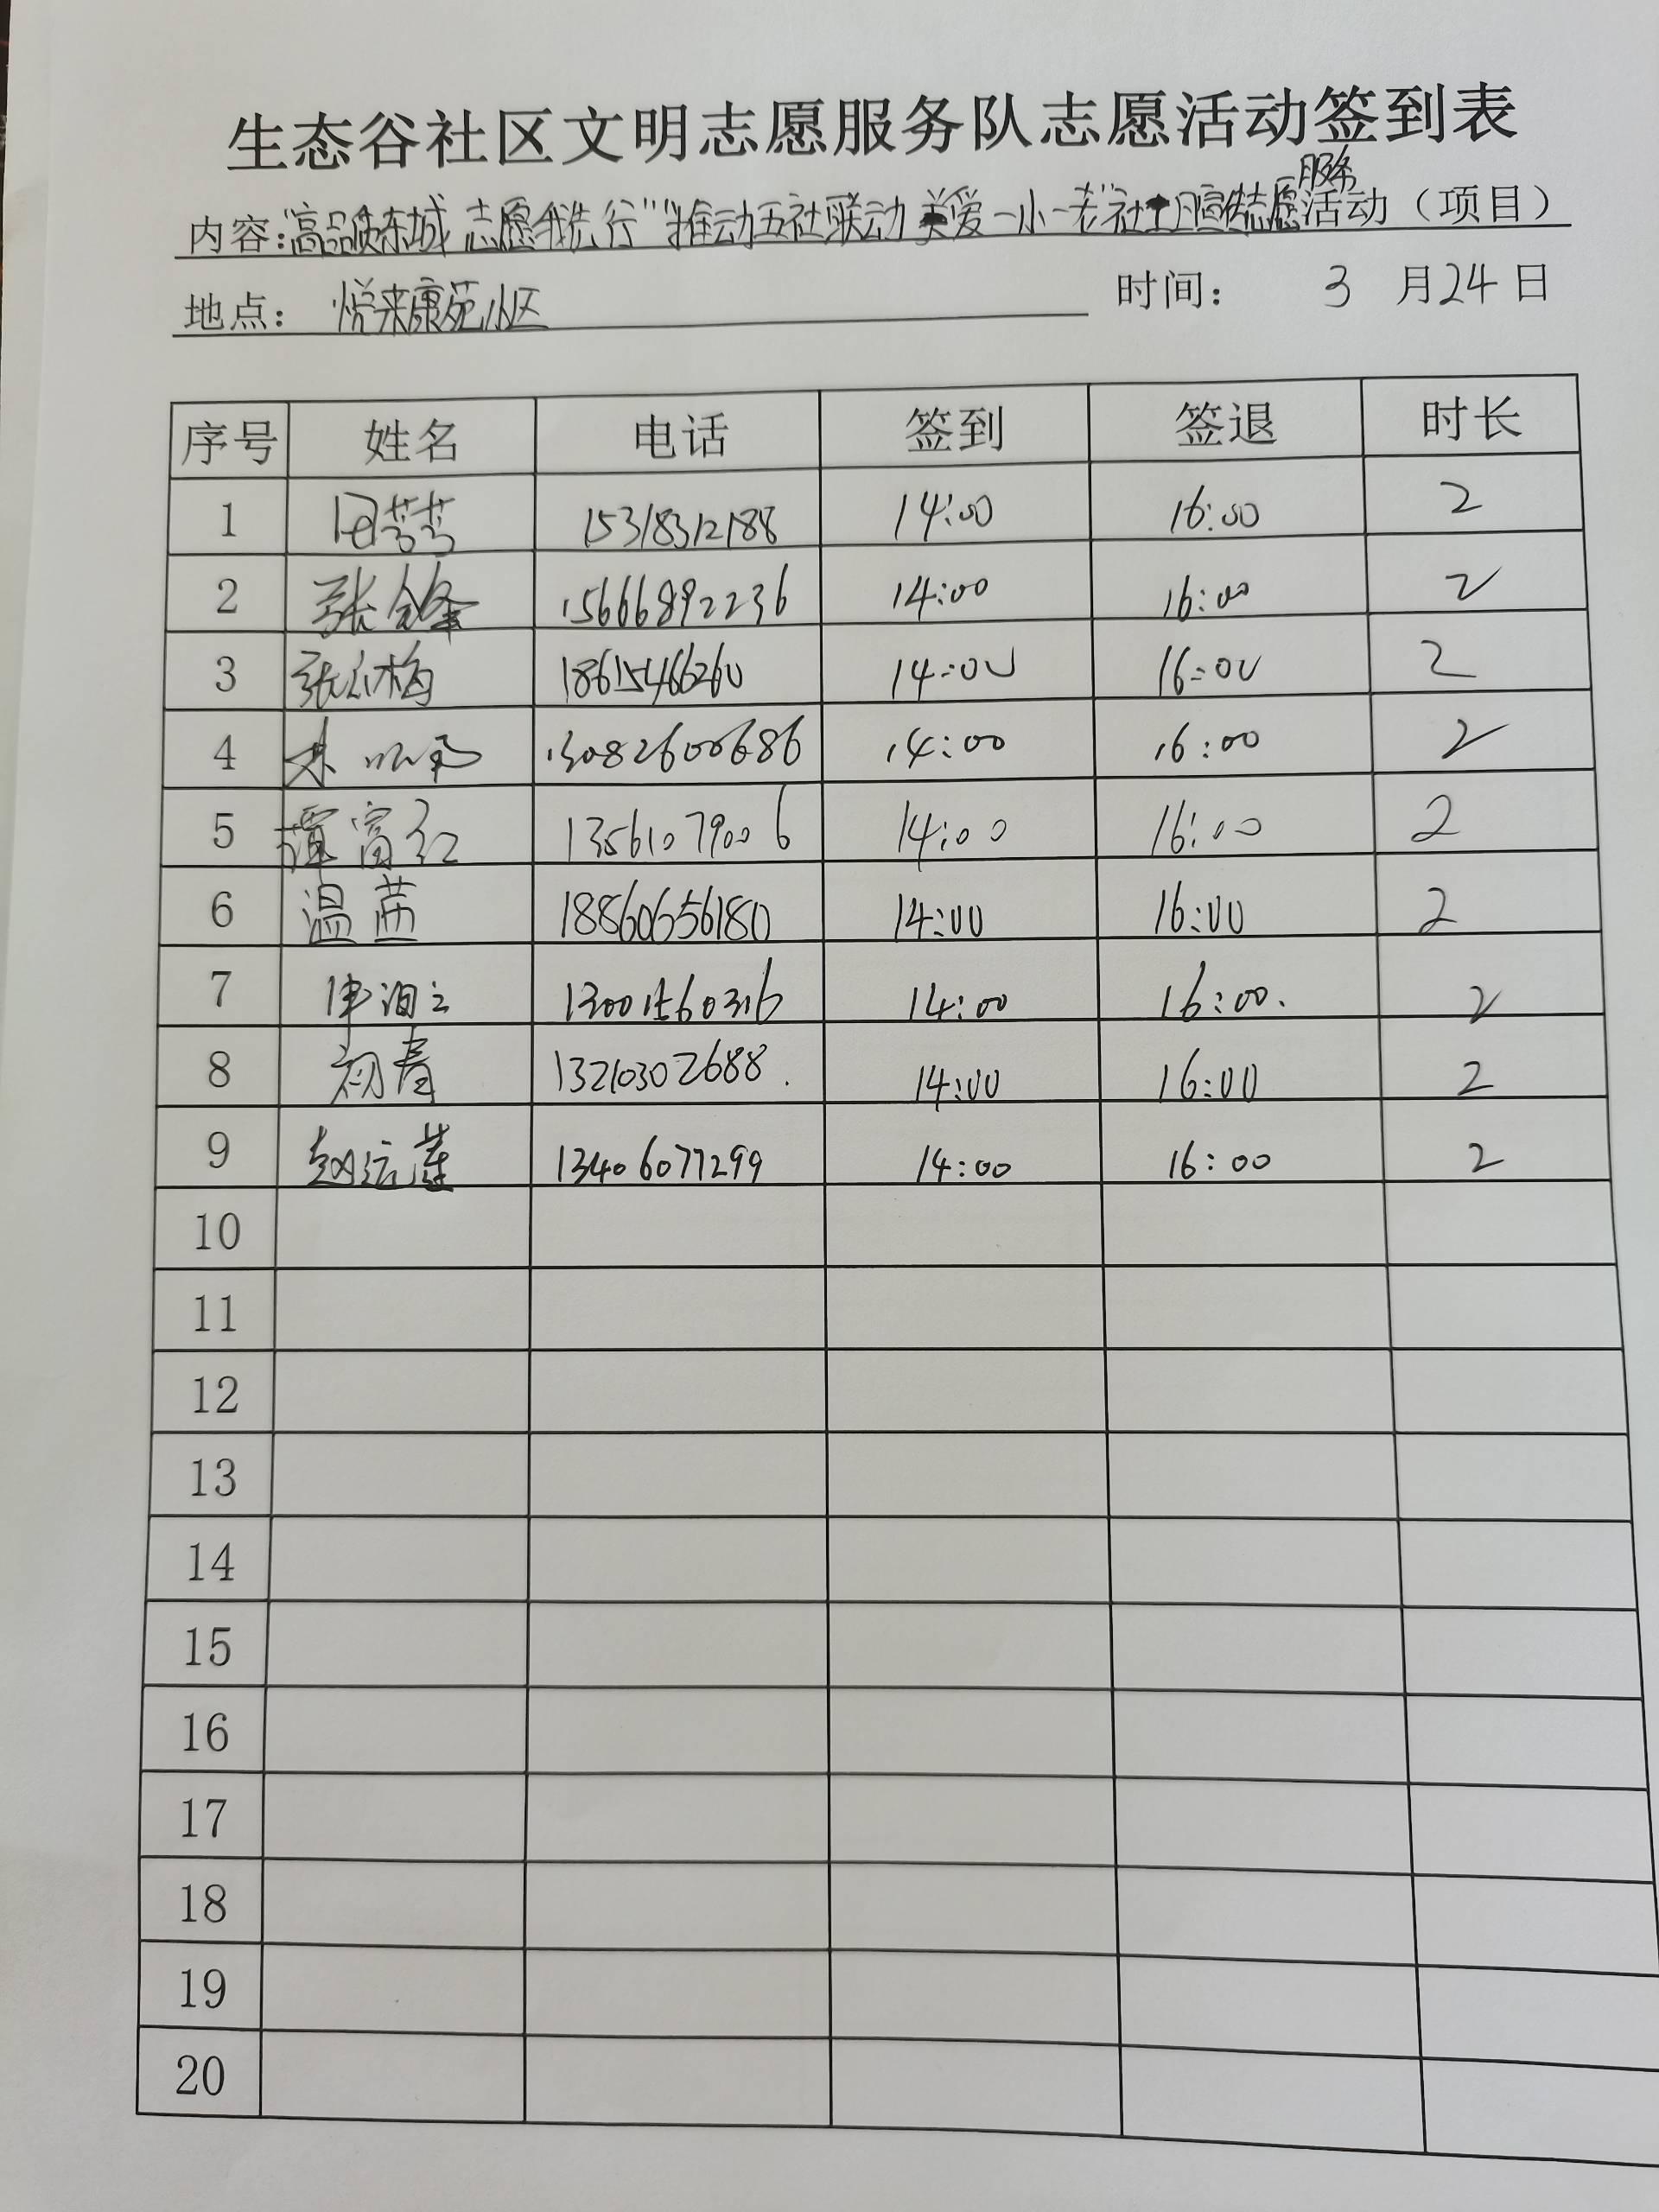 生态谷社区文明志愿服务队志愿活动签到表
服务
内容:“高品质东城 志愿我先行”“推动五社联动 关爱一小一老”社工月宣传志愿活动（项目）
地点： 悦来康苑小区 时间： 3 月24日
序号 姓名 电话 签到 签退 时长
1 田芳芳 15318312188 14:00 16:00 2
2 张金峰 15666892236 14:00 16:00 2
3 张红梅 18615466260 14:00 16:00 2
4 13082600686 14:00 16:00 2
5 谭富红 13561079006 14:00 16:00 2
6 温茜 18860656180 14:00 16:00 2
7 14:00 16:00. 2
8 初春 13210302688. 14:00 16:00 2
9 赵运莲 13406077299 14:00 16:00 2
10
11
12
13
14
15
16
17
18
19
20